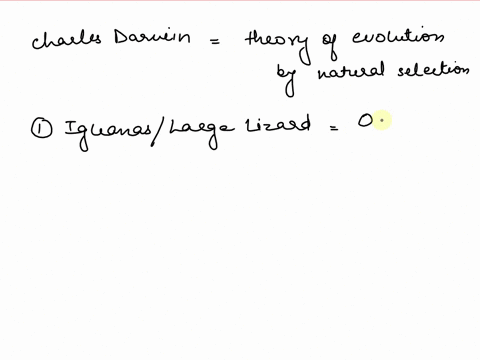 Charles Darwin = theory of evolution
by natural selection
① Iguanas/Large Lizard = O